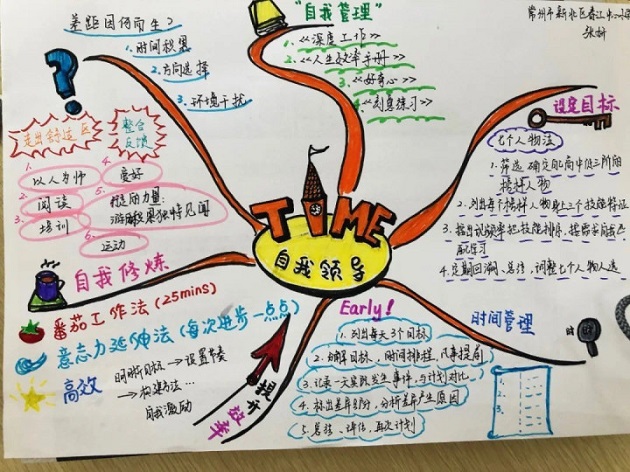 差距因何而生？
1.时间积累
2.方向选择
3.环境干扰
"自我管理"
1.《深度工作》
2.《人生效率手册》
3.《好奇心》
4.《刻意练习》
常州市新北区春江
设定目标
七个人物法
1.筛选确定自己高中低三阶段
榜样人物
2.列出每个榜样人物身上三个技能特征
3.
4.定期回溯、总结，调整七个人物人选
走出舒适区
整合
反馈
1.以人为师
2.阅读
3.培训
4.爱好
5.
6.运动
TIME
自我领导
自我修炼
番茄工作法（25mins）
意志力延伸法（每次进步一点点）
高效
→设置节奏
→构建方法...
自我激励
提升效率
Early!
1.列出每天3个目标
2.分解目标、时间排程，凡事提前
3.记录一天里所发生事件，与计划对比
4.标出差异部分，分析差异产生原因
5.总结、评估、再次计划
时间管理
时
1.
2.
3.